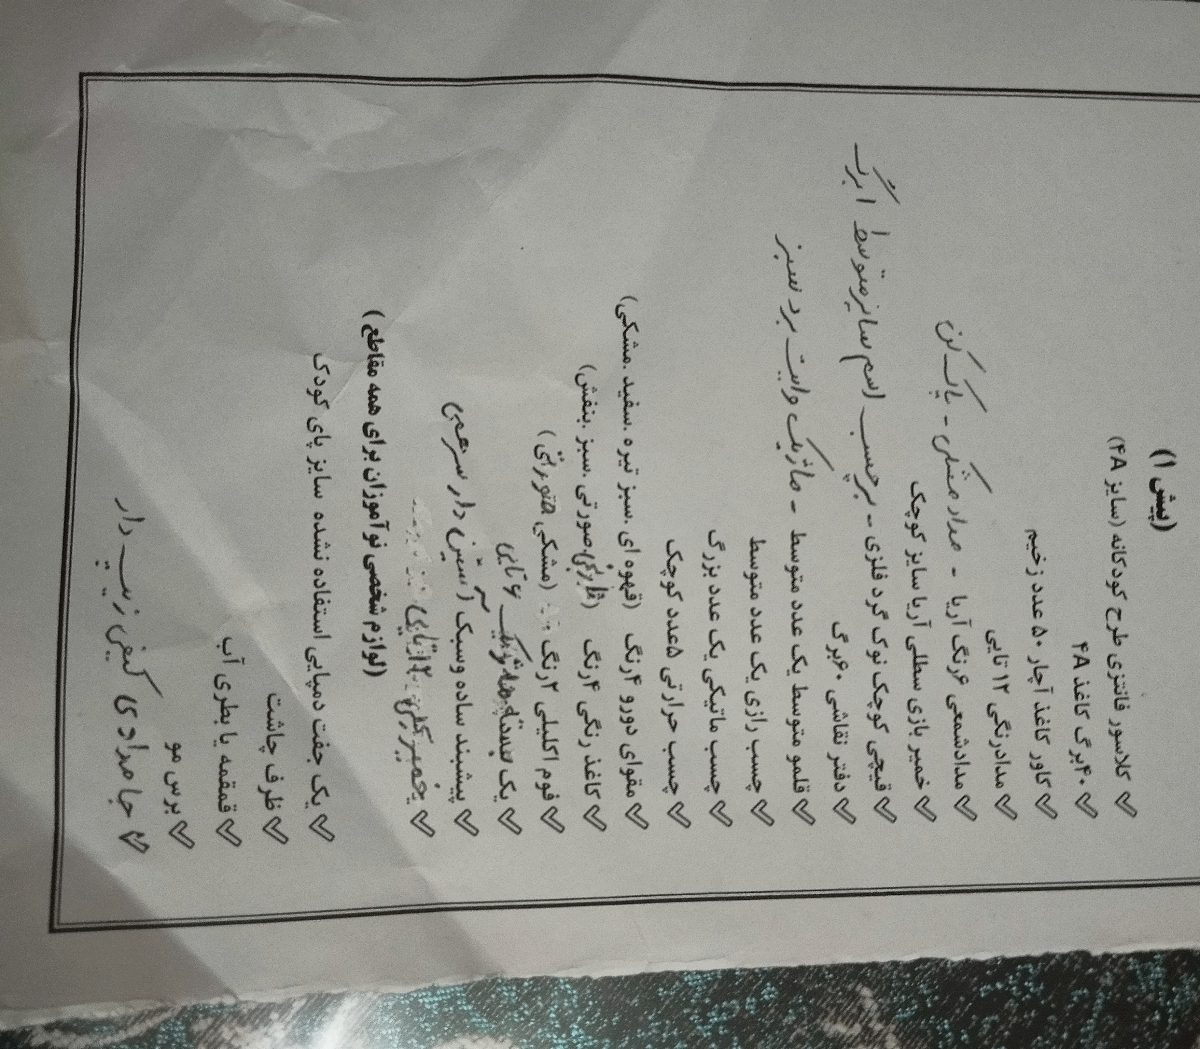 (پیش ۱)
کلاسور فانتزی طرح کودکانه (سایز ۴A)
۴۰برگ کاغذ ۴A
کاور کاغذ آچار ۵۰ عدد زخیم
مدادرنگی ۱۲ تایی
مدادشمعی ۶رنگ آریا - مداد مشکی - پاک کن
خمیر بازی سطلی آریا سایز کوچک
قیچی کوچک نوک گرد فلزی - برچسب اسم سایز متوسط ۱ برگ
دفتر نقاشی ۶۰برگ
قلمو متوسط یک عدد متوسط - ماژیک وایت برد سبز
چسب رازی یک عدد متوسط
چسب ماتیکی یک عدد بزرگ
چسب حرارتی ۵عدد کوچک
مقوای دورو ۴رنگ (قهوه ای .سبز تیره .سفید .مشکی)
کاغذ رنگی ۴رنگ (نارنجی.صورتی .سبز .بنفش)
فوم اکلیلی ۲رنگ (مشکی
یک بسته ۶ تایی
پیشبند ساده وسبک آستین دار سرهمی
خمیر
(لوازم شخصی نوآموزان برای همه مقاطع)
یک جفت دمپایی استفاده نشده سایز پای کودک
ظرف چاشت
قمقمه یا بطری آب
برس مو
جامدادی کیفی زیپ دار